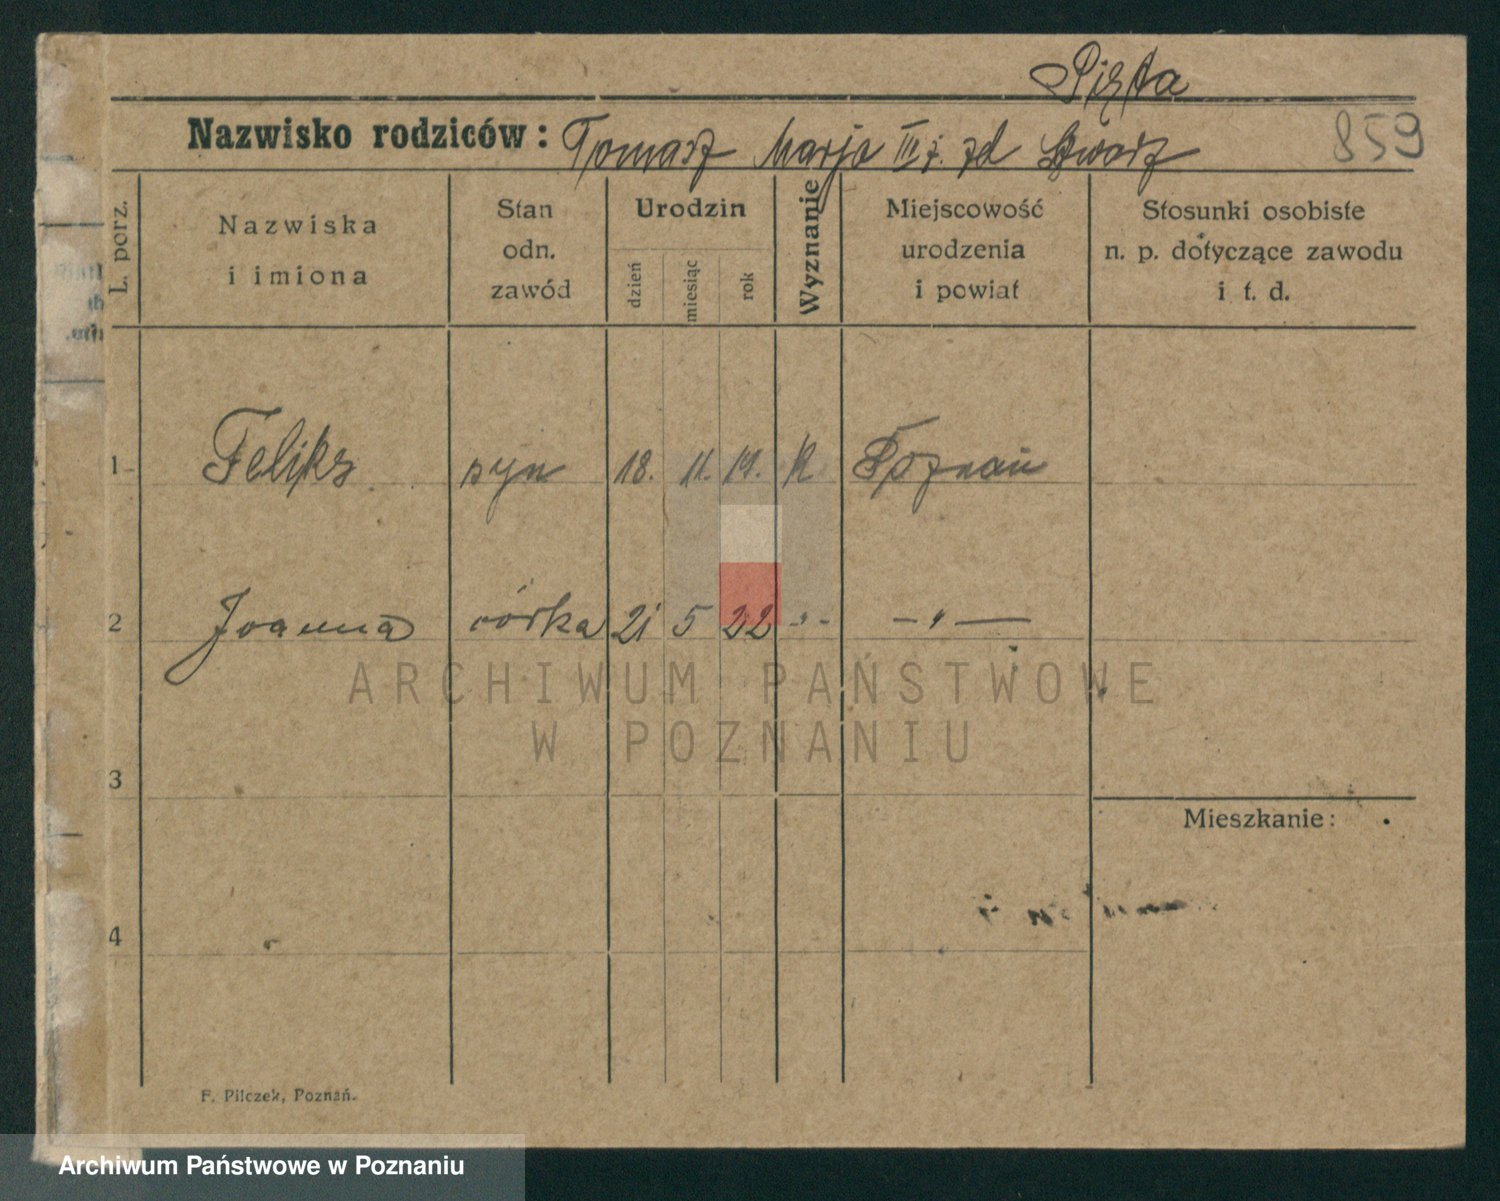 Pięta
Nazwisko rodziców: Tomasz Marja III ż. zd Szwarz
859
L. porz.
Nazwiska i imiona
Stan odn. zawód
Urodzin
dzień
miesiąc
rok
Wyznanie
Miejscowość urodzenia i powiat
Stosunki osobiste n. p. dotyczące zawodu i t. d.
1 Feliks syn 18. 11. 19. R Poznań
2 Joanna córka 21 5 22 -"- -"-
ARCHIWUM PAŃSTWOWE
W POZNANIU
3
Mieszkanie:
4
F. Pilczek, Poznań.
Archiwum Państwowe w Poznaniu